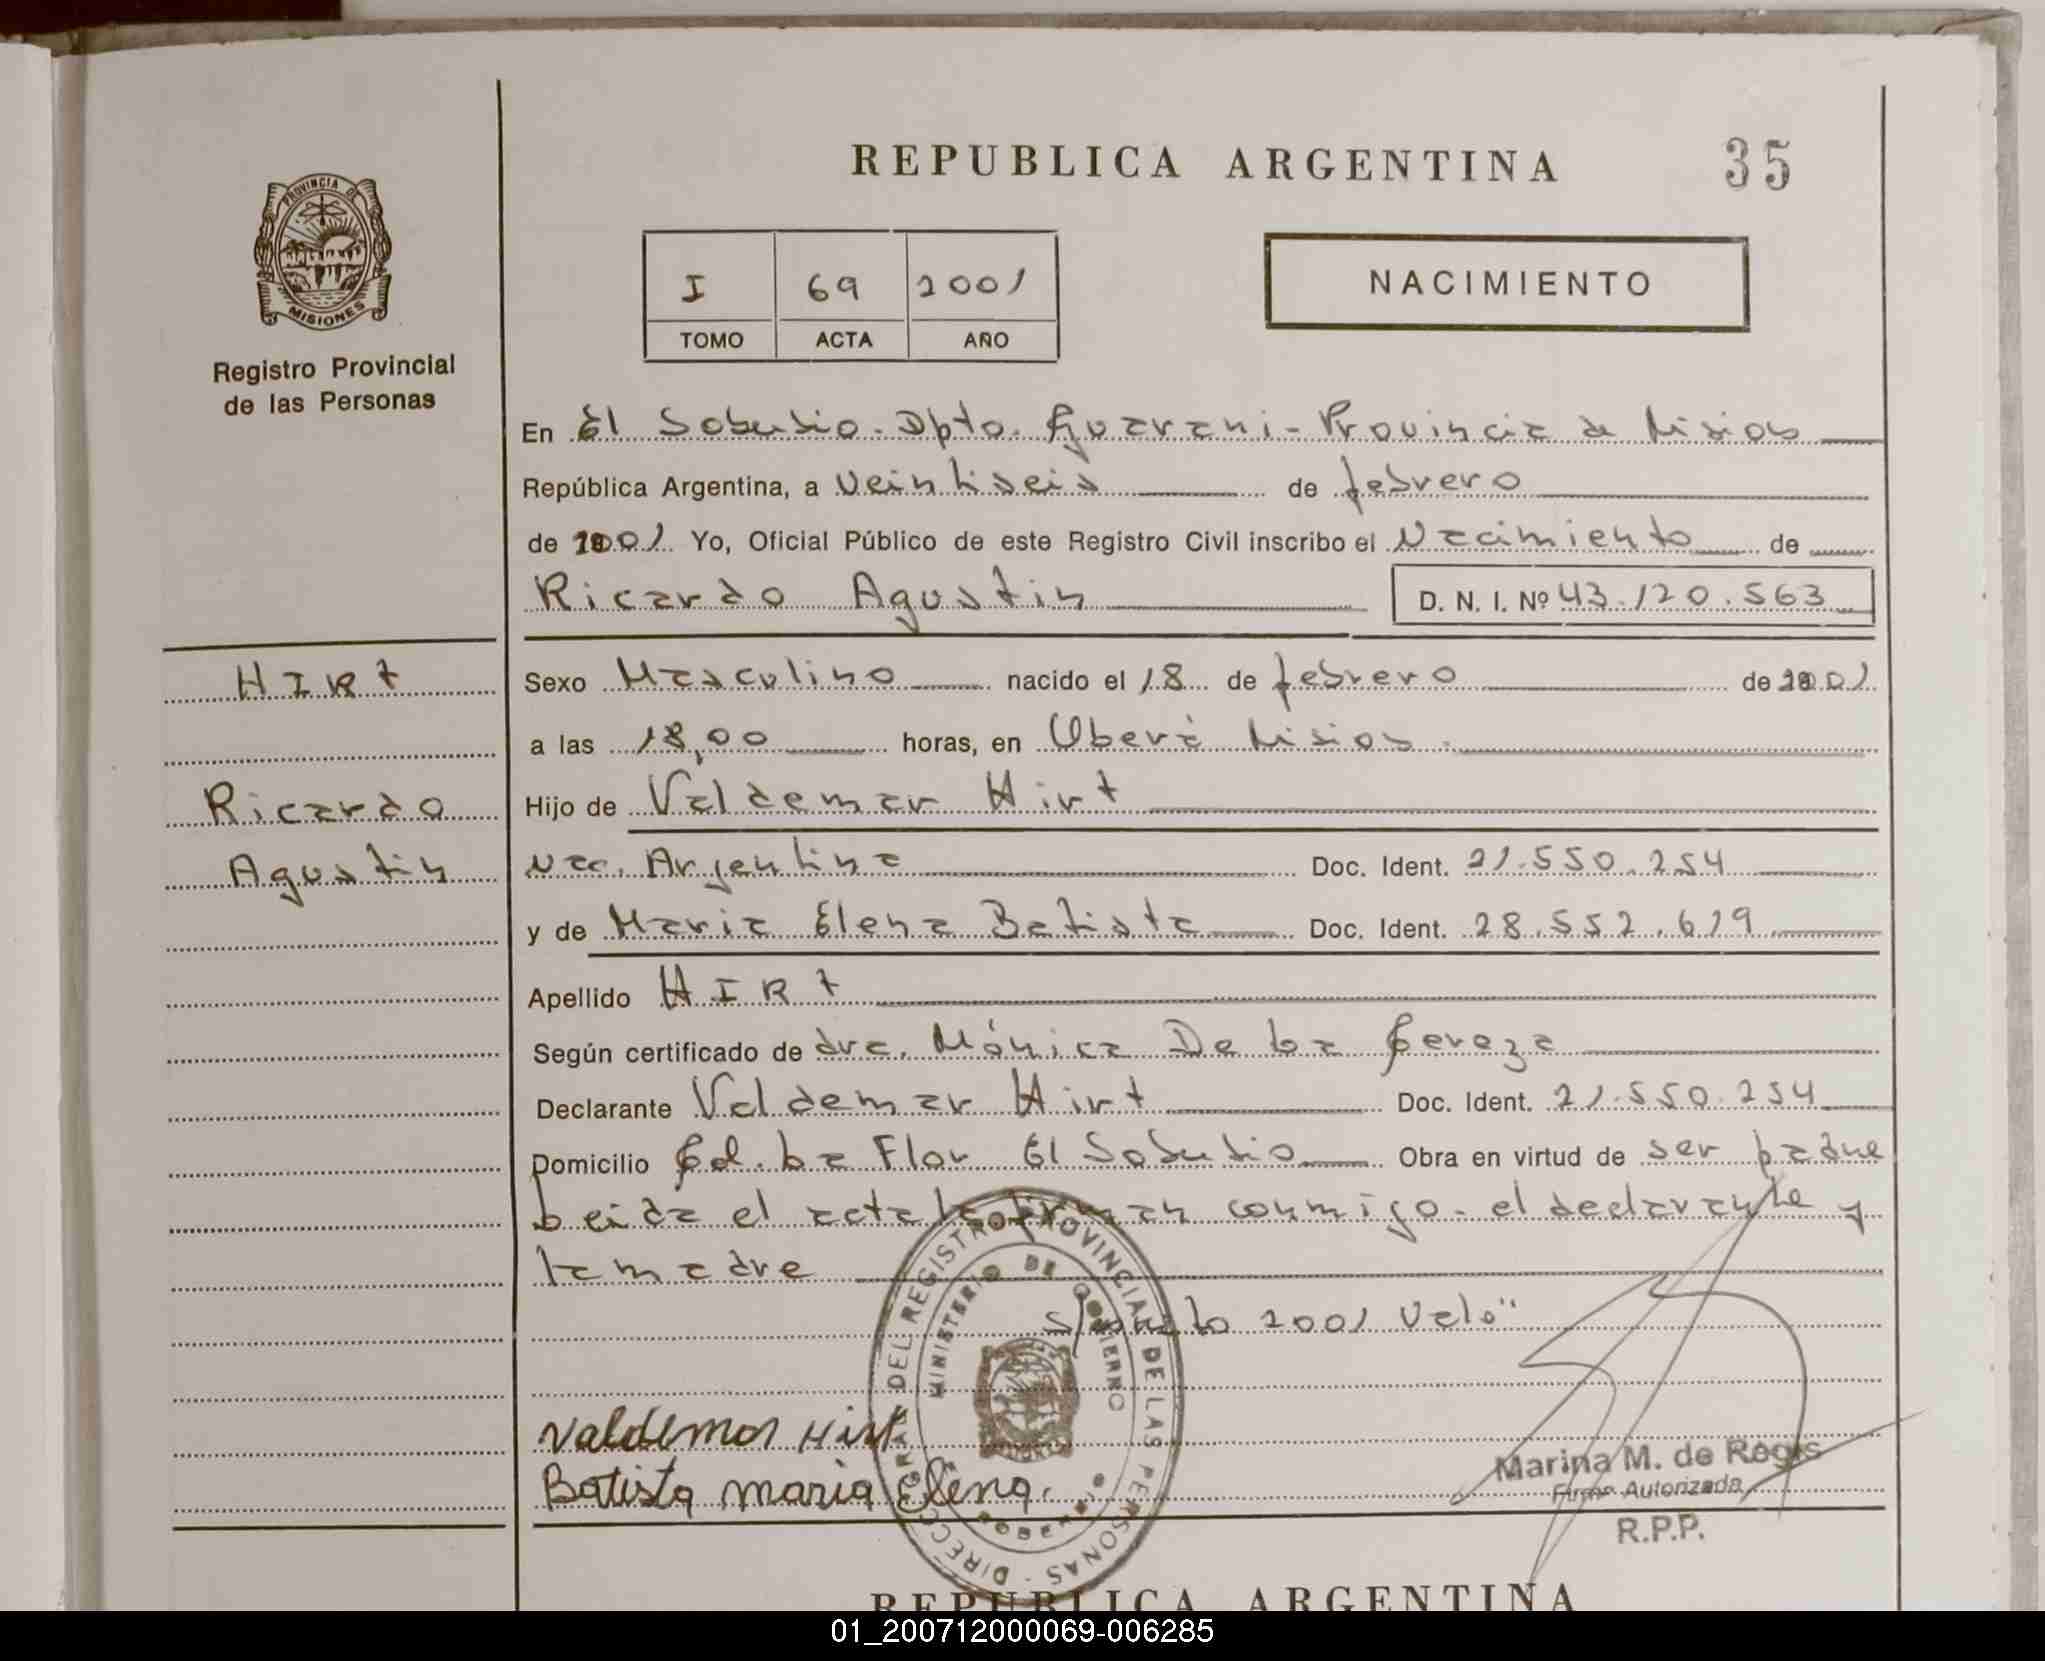 REPUBLICA ARGENTINA 35
PROVINCIA DE MISIONES
Registro Provincial
de las Personas
I 69 2001
TOMO ACTA AÑO
NACIMIENTO
En El Soberbio. Dpto. Guarani - Provincia de Misiones
República Argentina, a veintiseis de febrero
de 2001 Yo, Oficial Público de este Registro Civil inscribo el Nacimiento de
Ricardo Agustin D. N. I. Nº 43.120.563
HIRT
Sexo Masculino nacido el 18 de febrero de 2001
a las 18,00 horas, en Oberá Misiones.
Ricardo
Hijo de Valdemar Hirt
Agustin
Nac. Argentina Doc. Ident. 21.550.254
y de Maria Elena Batista Doc. Ident. 28.552.619
Apellido HIRT
Según certificado de dra. Mónica De La
Declarante Valdemar Hirt Doc. Ident. 21.550.254
Domicilio Col. La Flor El Soberbio Obra en virtud de ser padre
Leida el acta la firman conmigo. el declarante y
la madre
2001 Vale"
DIRECC. GRAL DEL REGISTRO PROVINCIAL DE LAS PERSONAS
MINISTERIO DE GOBIERNO
Valdemar Hirt
Batista maria Elena.
Marina M. de Regis
Firma Autorizada
R.P.P.
REPUBLICA ARGENTINA
01_200712000069-006285